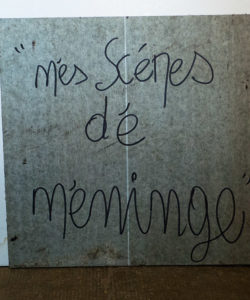 "més Scénes
dé
méninge"